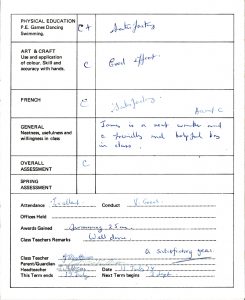 PHYSICAL EDUCATION
P.E. Games Dancing
Swimming.
C+
Satisfactory
ART & CRAFT
Use and application
of colour. Skill and
accuracy with hands.
C
Good effort.
FRENCH
C
Satisfactory.
GENERAL
Neatness, usefulness and
willingness in class
James is a neat worker and
a friendly and helpful boy
in class.
OVERALL
ASSESSMENT
C
SPRING
ASSESSMENT
Attendance Excellent Conduct V. Good
Offices Held
Awards Gained Swimming 25m
Class Teachers Remarks Well done.
A satisfactory year.
Class Teacher
Parent/Guardian
Headteacher Date July
This Term ends July Next Term begins Sept